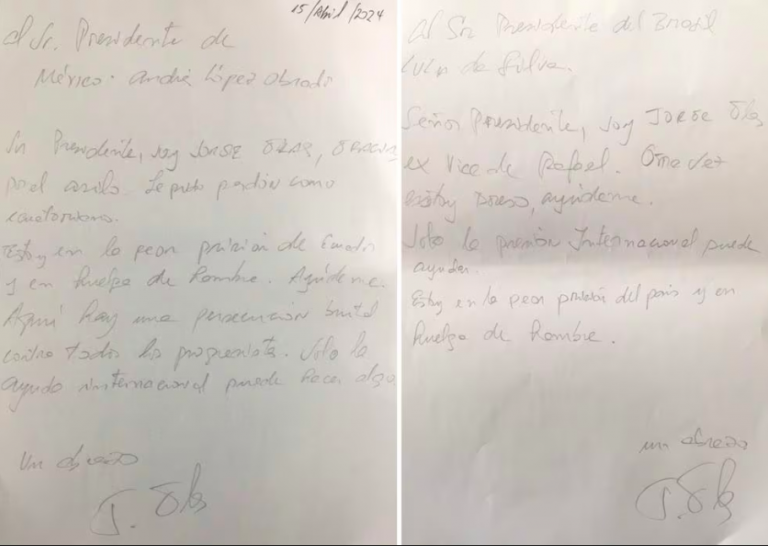 15/Abril/2024
Al Sr. Presidente de
México: André López Obrador
Sr Presidente, soy JORGE GLAS, GRACIAS
por el asilo. Le pido perdón como
ecuatoriano.
Estoy en la peor prisión de Ecuador
y en huelga de hambre. Ayúdeme.
Aquí hay una persecución brutal
contra todos los progresistas. Solo la
ayuda internacional puede hacer algo
Un abrazo
J. Glas
Al Sr. Presidente del Brasil
Lula da Silva.
Señor Presidente, soy JORGE Glas
ex Vice de Rafael. Otra vez
estoy preso, ayúdeme.
Solo la presión Internacional puede
ayudar.
Estoy en la peor prisión del país y en
huelga de hambre.
un abrazo
J. Glas